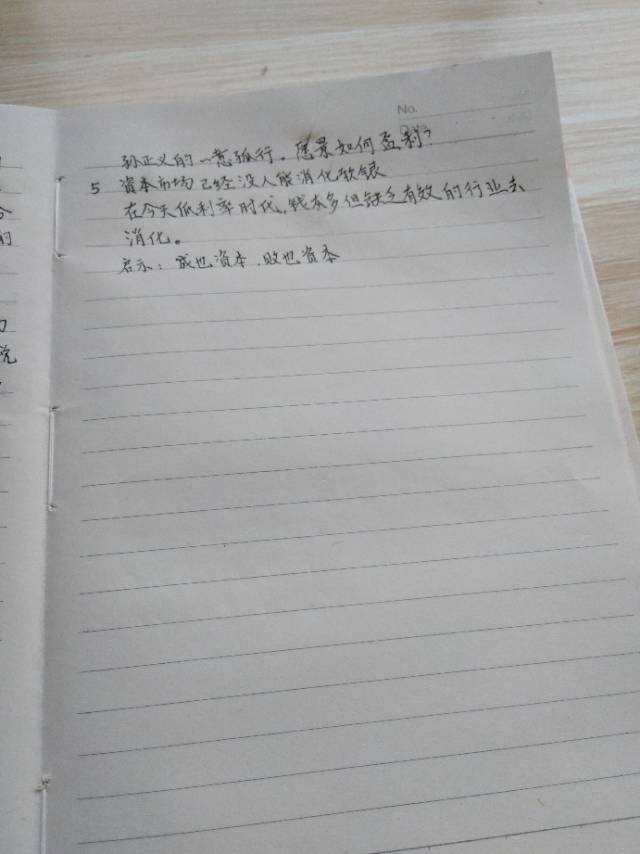 No.
孙正义的一意孤行。愿景如何盈利?
5 资本市场已经没人能消化软银
在今天低利率时代,钱太多但缺乏有效的行业去
消化。
启示:成也资本,败也资本
的